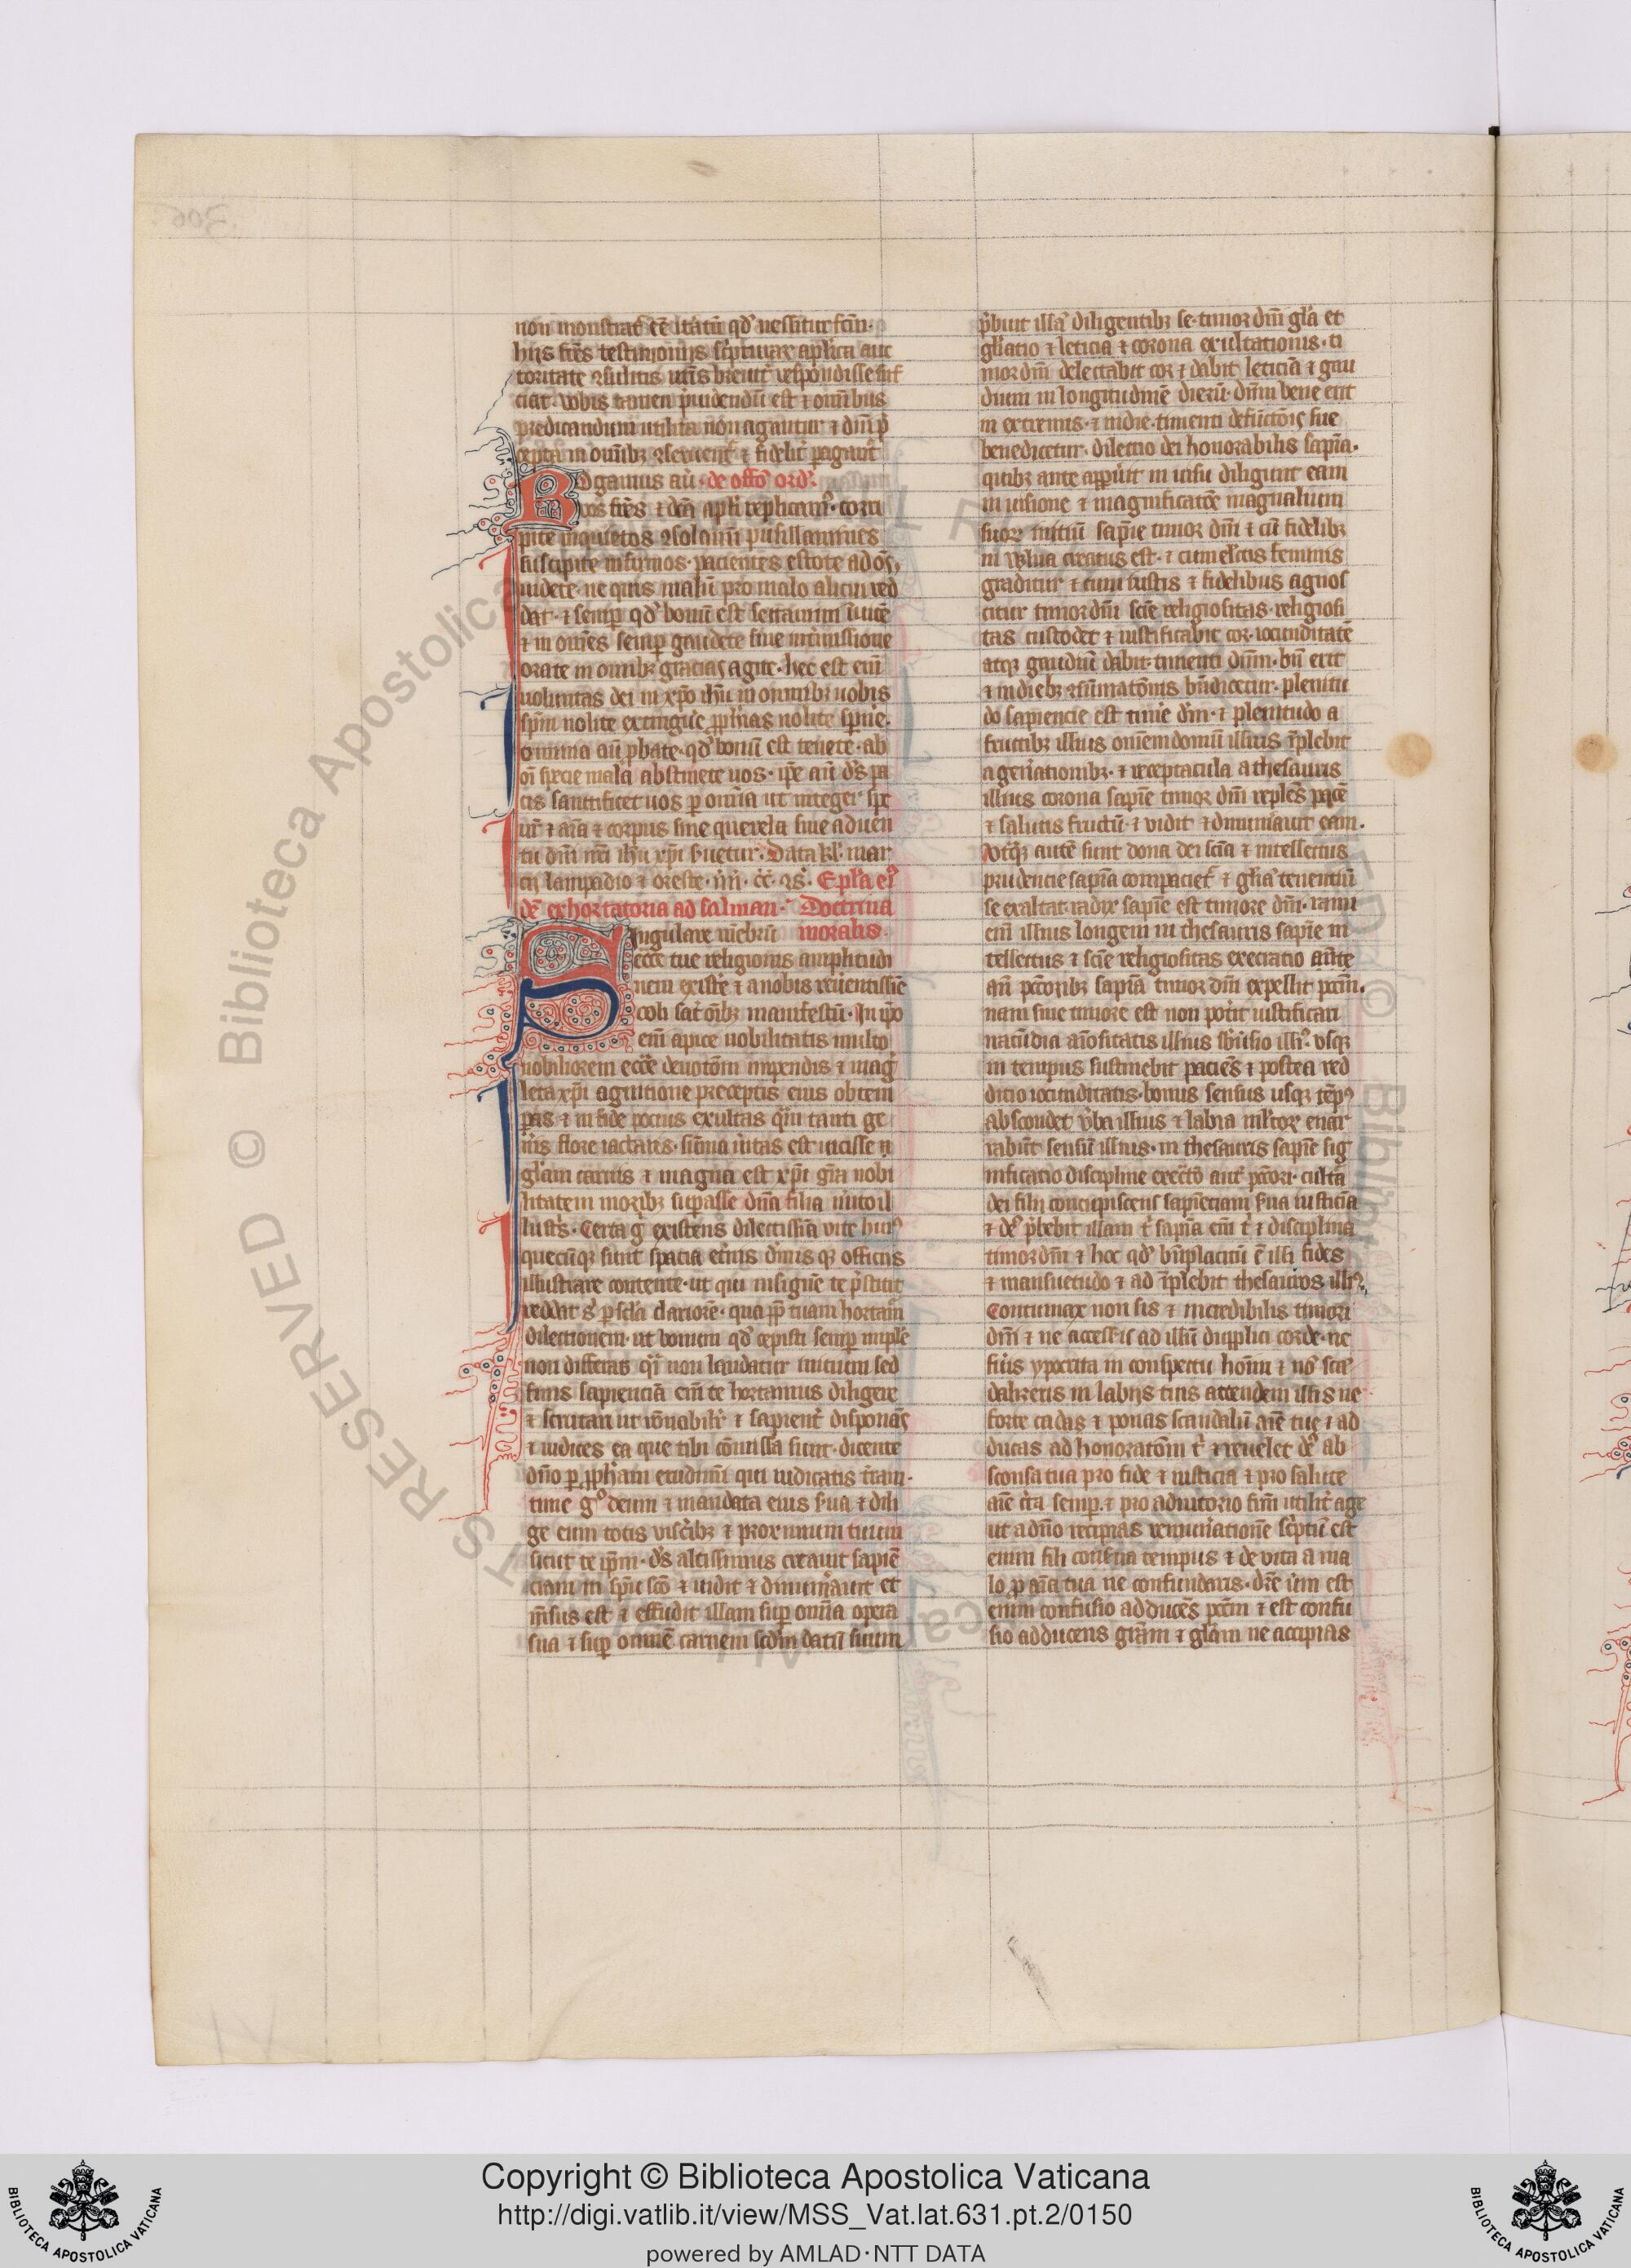 non monstrat̾ e͞e ƚr̄atū qd̾ nescitur scīn.
hiis fr̄es testimoniis scͥpturar̄ apl̄ica auc
toritate ꝯsultis ur̄is breuit̾ respondisse suf
ciat. vobis tamen puidendū est ⁊ omībus
predicandum ut ista nō nagantur ⁊ dn̄i p̄
cepta in omībꝫ ꝯseruent̾ ⁊ fidelit̾ pagant̾
Rogamus aū. de offō ord̾.
vos fr̄es ⁊ dc̄a apl̄i replicamꝰ. corri
pite inquietos ꝯsolamī pusillanimes
suscipite infirmos. pacientes estote ad oēs,
uidete. ne quis malū pro malo alicui red
dat. ⁊ semꝑ qd̾ bonū est sectamini īuicē
⁊ in omēs semꝑ gaudete sine int̾missione
orate in omībꝫ gracias agite. hec est eni͞
uoluntas dei in xp̄o ih̄u in omnibꝫ uobis
sp̄m nolite extingue̾ ꝓph̄ias nolite sp̾nie̾.
omnia aū ꝓbate. qd̾ bonū est tenete. ab
oī specie mala abstinete uos. ip̄e aū ds̄ pa
cis sanctificet uos ꝑ omīa ut integer sp̄c
ur̄ ⁊ aīa ⁊ corpus sine querela sine aduen
tu dn̄i nr̄i ih̄u xp̄i s̾uetur. Data kl̄. mar
cij lampadio ⁊ oreste. iiii. cc̄. ꝯs̄. Epl̄a eiꝰ
dē exhortatoria ad salman. Doctrina
Singulare mēbrū moralis.
ecc̄e tue religionis amplitudi
nem existe̾ ⁊ a nobis reue̾ntissīe
coli sat̾ oībꝫ manifestū. In ip̄o
eni͞ apice nobilitatis multo
nobiliorem ecc̄e deuotōm inpendis ⁊ mag̾
leta xp̄i agnitione preceptis eius obtem
ꝑas ⁊ in fide pocius exultas qͣm tanti ge
nis̾ flore iactaris. sūma uitas est uicisse ī
glo̾am carnis ⁊ magna est xp̄i gr̄a nobi
litatem moribꝫ suꝑasse dn̄a filia mito il
lustͥs. Certa g̾ existens dilectissīa vite huiꝰ
quecūqꝫ sunt spacia et̾nis dn̄is qꝫ officiis
illustrare contente. ut qui insignē te pͥstitit
reddat s̾ ꝑ sc̄la clariorē. qua ꝓp̾ tuam hortam̾
dilectionem. ut bonum qd̾ cepisti semꝑ implē
non differas qͥ non laudatur inicium sed
finis sapienciā eni͞ te hortamus diligere
⁊ scrutari ut rōnabilit̾ ⁊ sapient̾ disponas
⁊ iudices ea que tibi cōmissa sunt. dicente
dn̄o ꝑ ꝓph̄am erudimī qui iudicatis tr̄am.
time gͦ deum ⁊ mandata eius s̾ua ⁊ dili
ge eum totis visc̾ibꝫ ⁊ proximum tuum
sicut te ip̄m. ds̄ altissimus creauit sapiē
ciam in sp̄u sc̄o ⁊ uidit ⁊ dinum̾auit et
m̄sus est ⁊ effudit illam suꝑ omīa opera
sua ⁊ suꝑ omnē carnem scd̄m datū suum
pͥbuit illā diligentibꝫ se. timor dn̄i glo̾a et
glo̾iatio ⁊ leticia ⁊ corona exultationis. ti
mor dn̄i delectabit cor ⁊ dabit leticiā ⁊ gau
dium in longitudinē dierū. dn̄m bene erit
in extremis. ⁊ in die. timenti defūctōis sue
benedicetur. dilectio dei honorabilis sapīa.
quibꝫ ante apꝑūit in uisu diligunt eam
in uisione ⁊ magnificatōe magnalium
suoꝝ inicīu sapīe timor dn̄i ⁊ cū fidelibꝫ
in vulua creatus est. ⁊ cum el̄cis feminis
graditur ⁊ cum iustis ⁊ fidelibus agnos
citur timor dn̄i scīe religiositas. religiosi
tas custodiet ⁊ iustificabit cor. iocunditatē
atqꝫ gaudiū dabit. timenti dn̄m. bn̄ erit
⁊ in diebꝫ ꝯsūmatōnis bn̄dicetur. plenitu
do sapiencie est time̾ dn̄. ⁊ plenitudo a
fructibꝫ illius omēm domū illius īplebit
a gen̾ationibꝫ. ⁊ receptacula a thesauris
illius corona sapīe timor dn̄i replēs pacē
⁊ salutis fructū. ⁊ vidit ⁊ dinum̾auit eam.
Vtq̾ꝫ autē sunt dona dei scīa ⁊ intellectus
prudencie sapīa compaciet̾ ⁊ glo̾iā tenentiū
se exaltat. radix sapīe est timore dn̄i. rami
eni͞ illius longeui in thesauris sapīe in
tellectus ⁊ scīe religiositas execratio aūte
aū pc̄coribꝫ sapīa timor dn̄i expellit pcc̄m.
nam sine timore est non potit̾ iustificari
iracūdia aīositatis illius sb̾u̾sio illiꝰ. usqꝫ
in tempus sustinebit pacies ⁊ postea red
ditio iocunditatis. bonus sensus usqꝫ tēpꝰ
abscondet v̾ba illius ⁊ labia ml̾toꝝ enar
rabūt sensū illius. in thesauris sapīe sig
nificatio discipline exec̾tō aut̾ pc̄cori. cultͣa
dei fili concupiscens sapienciam s̾ua iusticiā
⁊ dsͥ pͥbebit illam tͥ sapīa eni͞ tͥ ⁊ disciplina
timor dn̄i ⁊ hoc qd̾ bn̄placitū ē illi fides
⁊ mansuetudo ⁊ ad īplebit thesauros illiꝰ,
Contumax non sis ⁊ incredibilis timori
dn̄i ⁊ ne access̾is ad illū duplici corde. ne
fue̾is ypocrita in conspectu hoīm ⁊ nō scā
dalizeris in labiis tuis attendem illis ne
forte cadas ⁊ ponas scandalū aīe tue ⁊ ad
ducas ad honoratōm tͥ ⁊ reuelet ds̾ ab
sconsa tua pro fide ⁊ iusticia ⁊ pro salute
aīe c̾ta semꝑ. ⁊ pro adiutorio frm̄ utilit̾ age
ut a dn̄o recipias remun̾ationē scͥptū est
enim fili conse̾ua tempus ⁊ de vita a ma
lo ꝓ aīa tua ne confundaris. dic̾e ue̾m est
enim confusio adducēs pcc̄m ⁊ est confu
sio adducens gr̄am ⁊ glo̾am ne accipias
Copyright © Biblioteca Apostolica Vaticana
http://digi.vatlib.it/view/MSS_Vat.lat.631.pt.2/0150
powered by AMLAD·NTT DATA